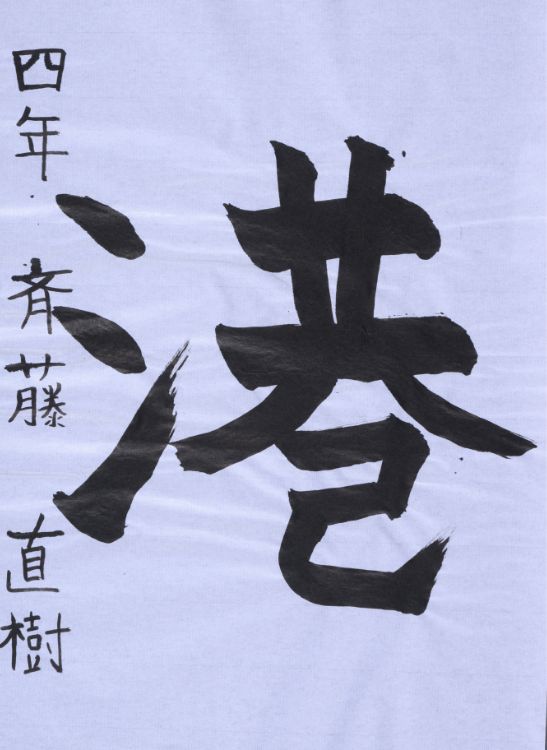 港
四年 斉藤 直樹